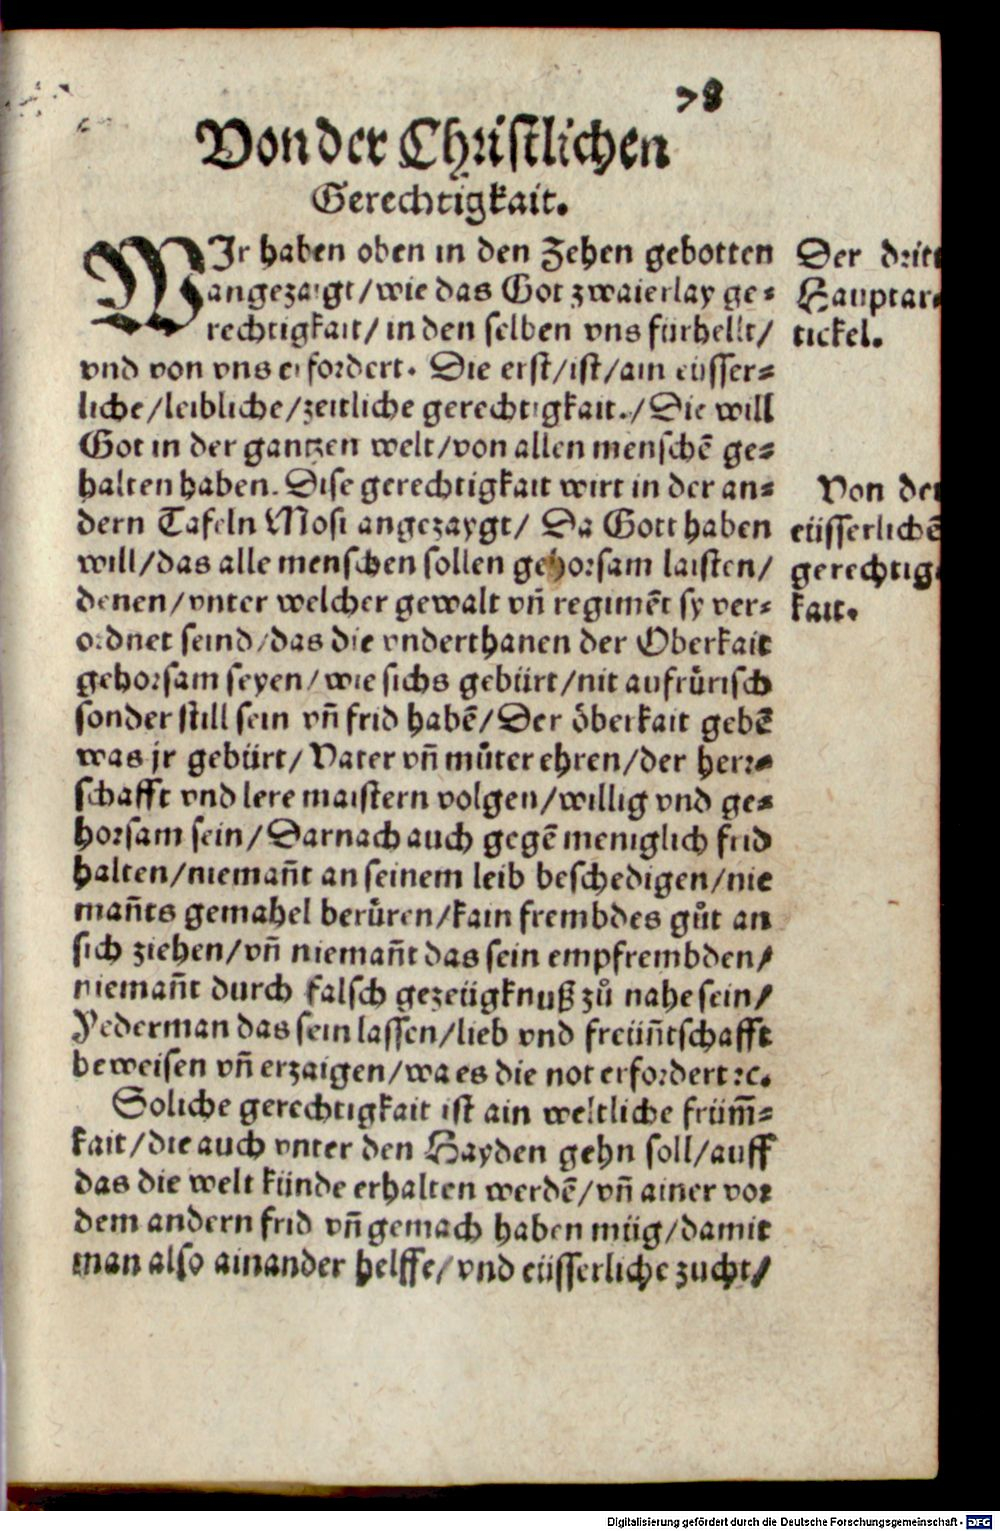 78
Von der Christlichen
Gerechtigkait.
WIr haben oben in den Zehen gebotten
angezaigt/wie das Got zwaierlay ge-
rechtigkait/ in den selben vns fürhellt/
vnd von vns erfordert. Die erst/ist/ain eüsser-
liche/leibliche/zeitliche gerechtigkait./Die will
Got in der gantzen welt/von allen menschē ge-
halten haben. Dise gerechtigkait wirt in der an-
dern Tafeln Mosi angezaygt/ Da Gott haben
will/das alle menschen sollen gehorsam laisten/
denen/vnter welcher gewalt vñ regimēt sy ver-
ordnet seind/das die vnderthanen der Oberkait
gehorsam seyen/wie sichs gebürt/nit aufrůrisch
sonder still sein vñ frid habē/Der öberkait gebē
was jr gebürt/ Vater vñ můter ehren/der herr-
schafft vnd lere maistern volgen/willig vnd ge-
horsam sein/Darnach auch gegē meniglich frid
halten/niemañt an seinem leib beschedigen/nie
mañts gemahel berůren/kain frembdes gůt an
sich ziehen/vñ niemañt das sein empfrembden/
niemañt durch falsch gezeügknuß zů nahe sein/
Yederman das sein lassen/lieb vnd freüñtschafft
beweisen vñ erzaigen/wa es die not erfordert ꝛc.
Soliche gerechtigkait ist ain weltliche früm̄-
kait/die auch vnter den Hayden gehn soll/auff
das die welt künde erhalten werdē/vñ ainer vor
dem andern frid vñ gemach haben müg/damit
man also ainander helffe/vnd eüsserliche zucht/
Der dritt
Hauptar-
tickel.
Von der
eüsserlichē
gerechtig-
kait.
Digitalisierung gefördert durch die Deutsche Forschungsgemeinschaft - DFG